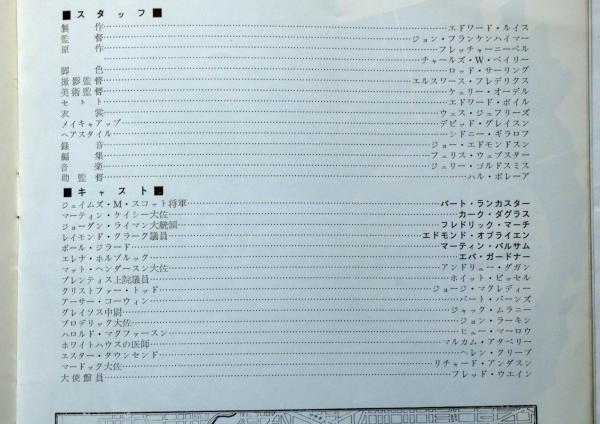 ■スタッフ■
製作……エドワード・ルイス
監督……ジョン・フランケンハイマー
原作……フレッチャーニーベル
……チャールズ・W・ベイリー
脚色……ロッド・サーリング
撮影監督……エルスワース・フレデリクス
美術監督……ケェリー・オーデル
セット……エドワード・ボイル
衣裳……ウェス・ジェフリーズ
メイキャアップ……デビッド・グレイスン
ヘアスタイル……シドニー・ギラロフ
録音……ジョー・エドモンドスン
編集……フェリス・ウェブスター
音楽……ジェリー・ゴルドスミス
助監督……ハル・ポレーア
■キャスト■
ジェイムズ・M・スコット将軍……バート・ランカスター
マーティン・ケイシー大佐……カーク・ダグラス
ジョーダン・ライマン大統領……フレドリック・マーチ
レイモンド・クラーク議員……エドモンド・オブライエン
ポール・ジラード……マーティン・バルサム
エレナ・ホルブルック……エバ・ガードナー
マット・ヘンダースン大佐……アンドリュー・ダガン
プレンティス上院議員……ホイット・ビッセル
クリストファー・トッド……ジョージ・マクレディー
アーサー・コーウィン……バート・バーンズ
グレイソス中尉……ジャック・ムラニー
ブロデリック大佐……ジョン・ラーキン
ハロルド・マクファースン……ヒュー・マーロウ
ホワイトハウスの医師……マルカム・アタベリー
エスター・タウンセンド……ヘレン・クリーブ
マードック大佐……リチャード・アンダスン
大使館員……フレッド・ウエイン